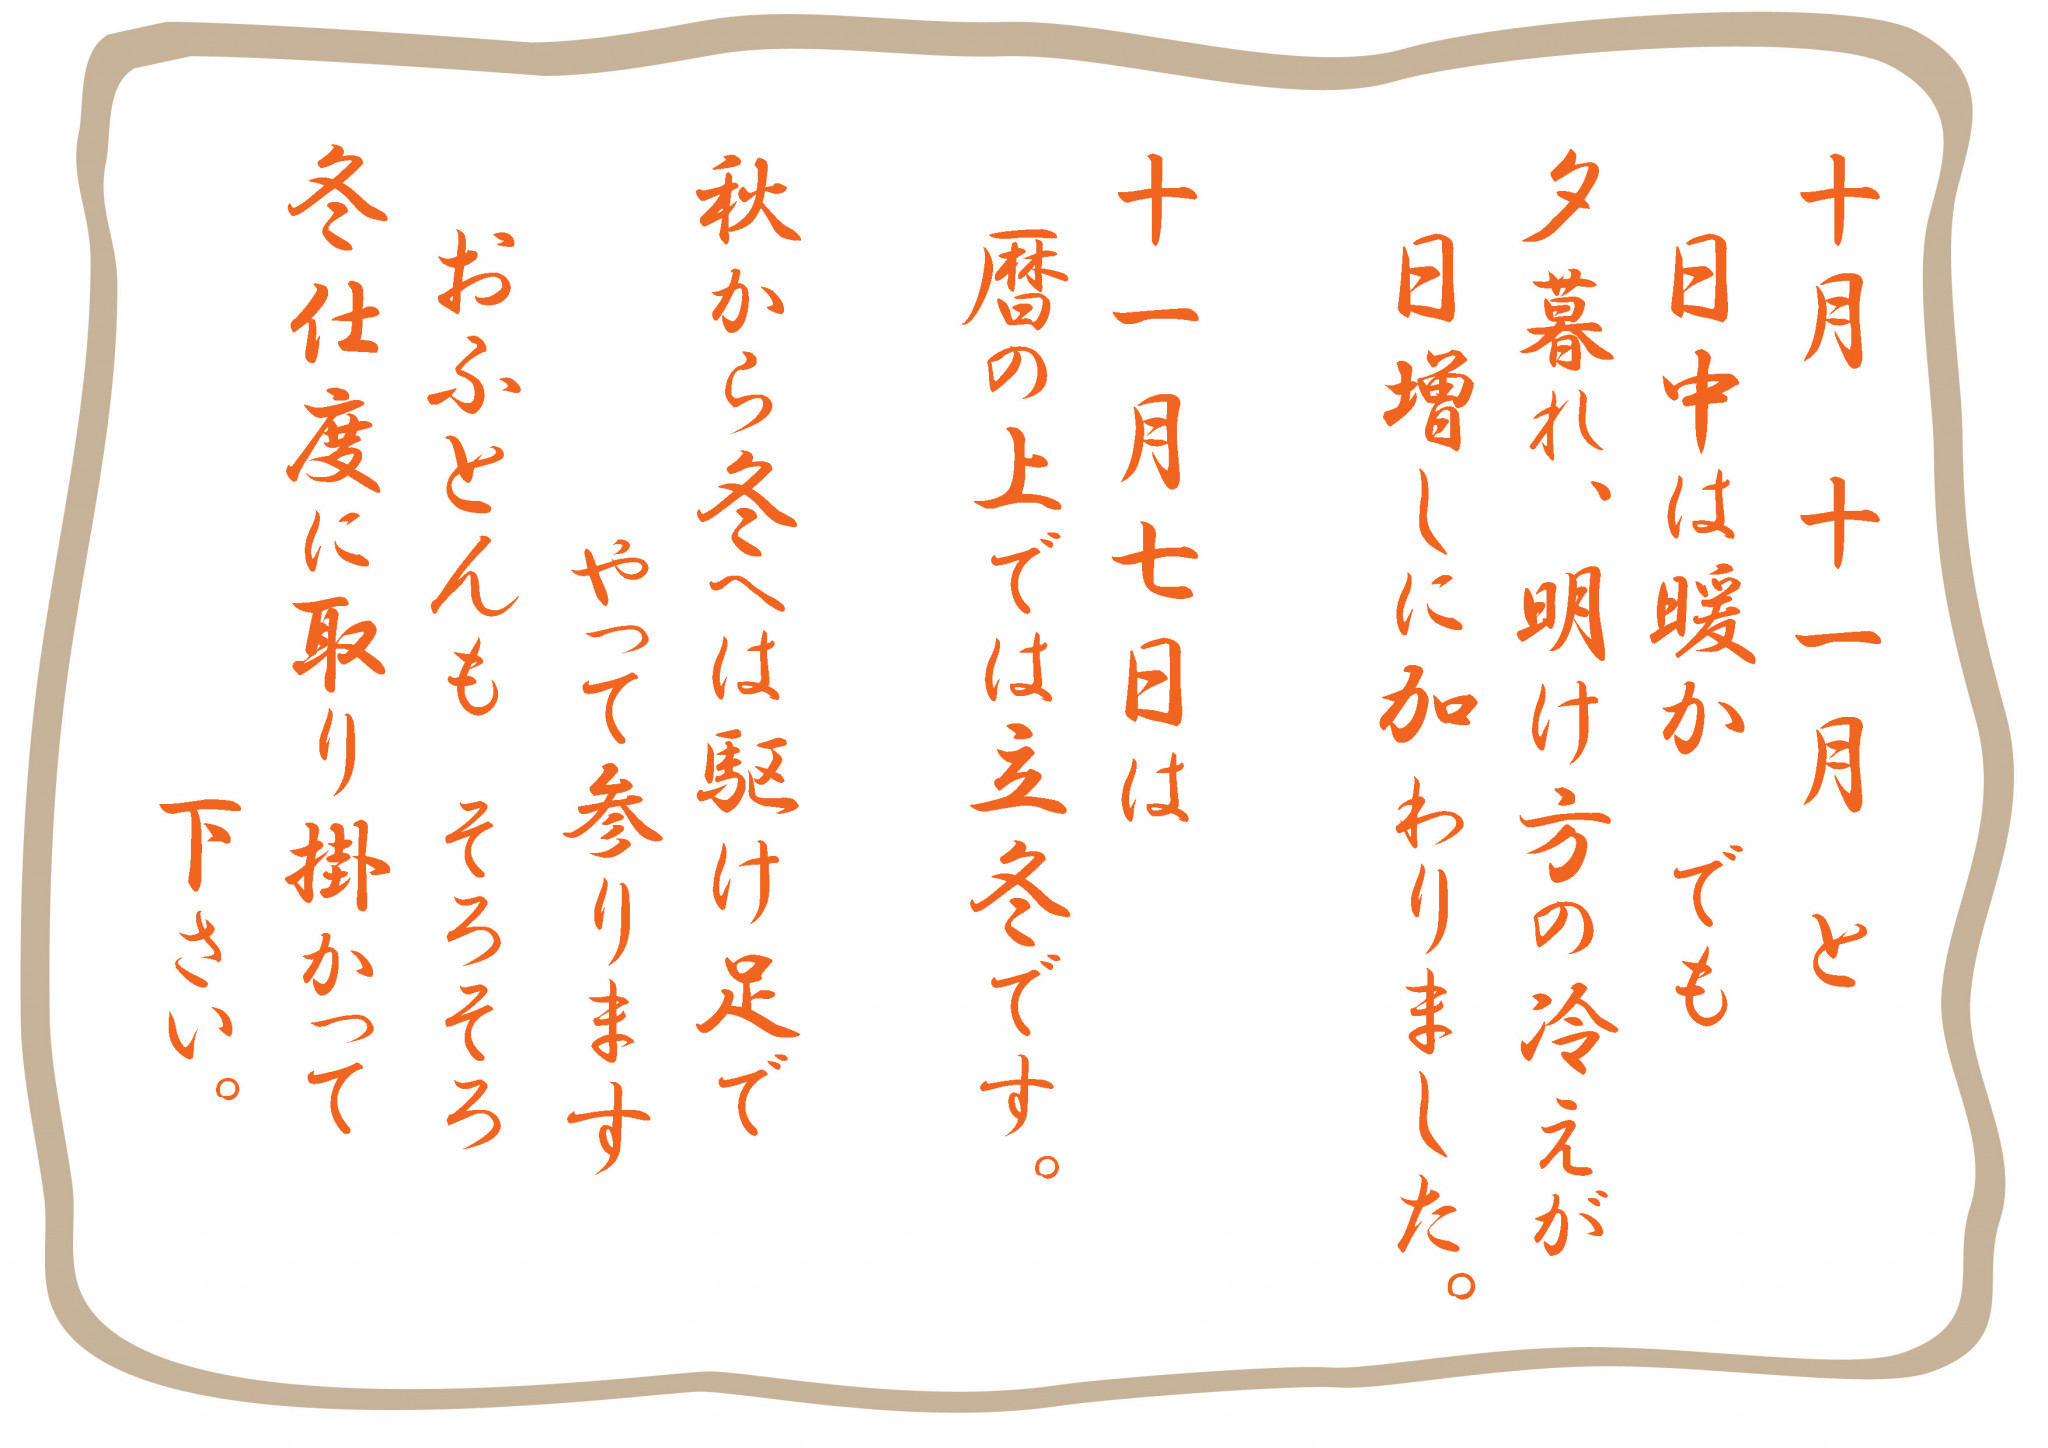 十月　十一月　と
日中は暖か　でも
夕暮れ、明け方の冷えが
日増しに加わりました。
十一月七日は
暦の上では立冬です。
秋から冬へは駆け足で
やって参ります
おふとんも　そろそろ
冬仕度に取り掛かって
下さい。